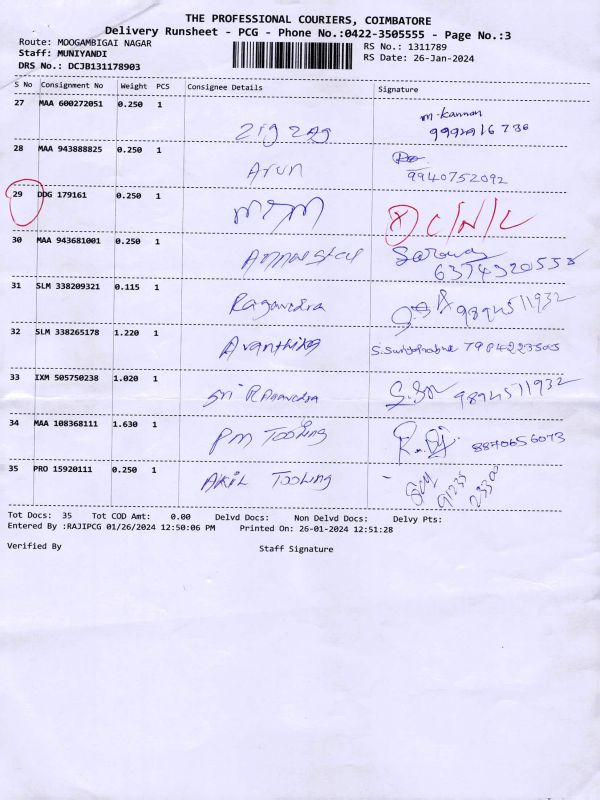 THE PROFESSIONAL COURIERS, COIMBATORE
Delivery Runsheet - PCG - Phone No.:0422-3505555 - Page No.:3
Route: MOOGAMBIGAI NAGAR RS No.: 1311789
Staff: MUNIYANDI RS Date: 26-Jan-2024
DRS No.: DCJB131178903
S No Consignment No Weight PCS Consignee Details Signature
27 MAA 600272051 0.250 1
m. kannan
zig zag
28 MAA 943888825 0.250 1
Arun 9940752092
29 DDG 179161 0.250 1
MSM C/N/L
30 MAA 943681001 0.250 1
6374320558
31 SLM 338209321 0.115 1
Ragavendra 9894511932
32 SLM 338265178 1.220 1
Avanthika 7904223505
33 IXM 505750238 1.020 1
Sri Ragavendra 9894511932
34 MAA 108368111 1.630 1
PM Tooling 8870656073
35 PRO 15920111 0.250 1
AKIL Tooling
Tot Docs: 35 Tot COD Amt: 0.00 Delvd Docs: Non Delvd Docs: Delvy Pts:
Entered By :RAJIPCG 01/26/2024 12:50:06 PM Printed On: 26-01-2024 12:51:28
Verified By Staff Signature